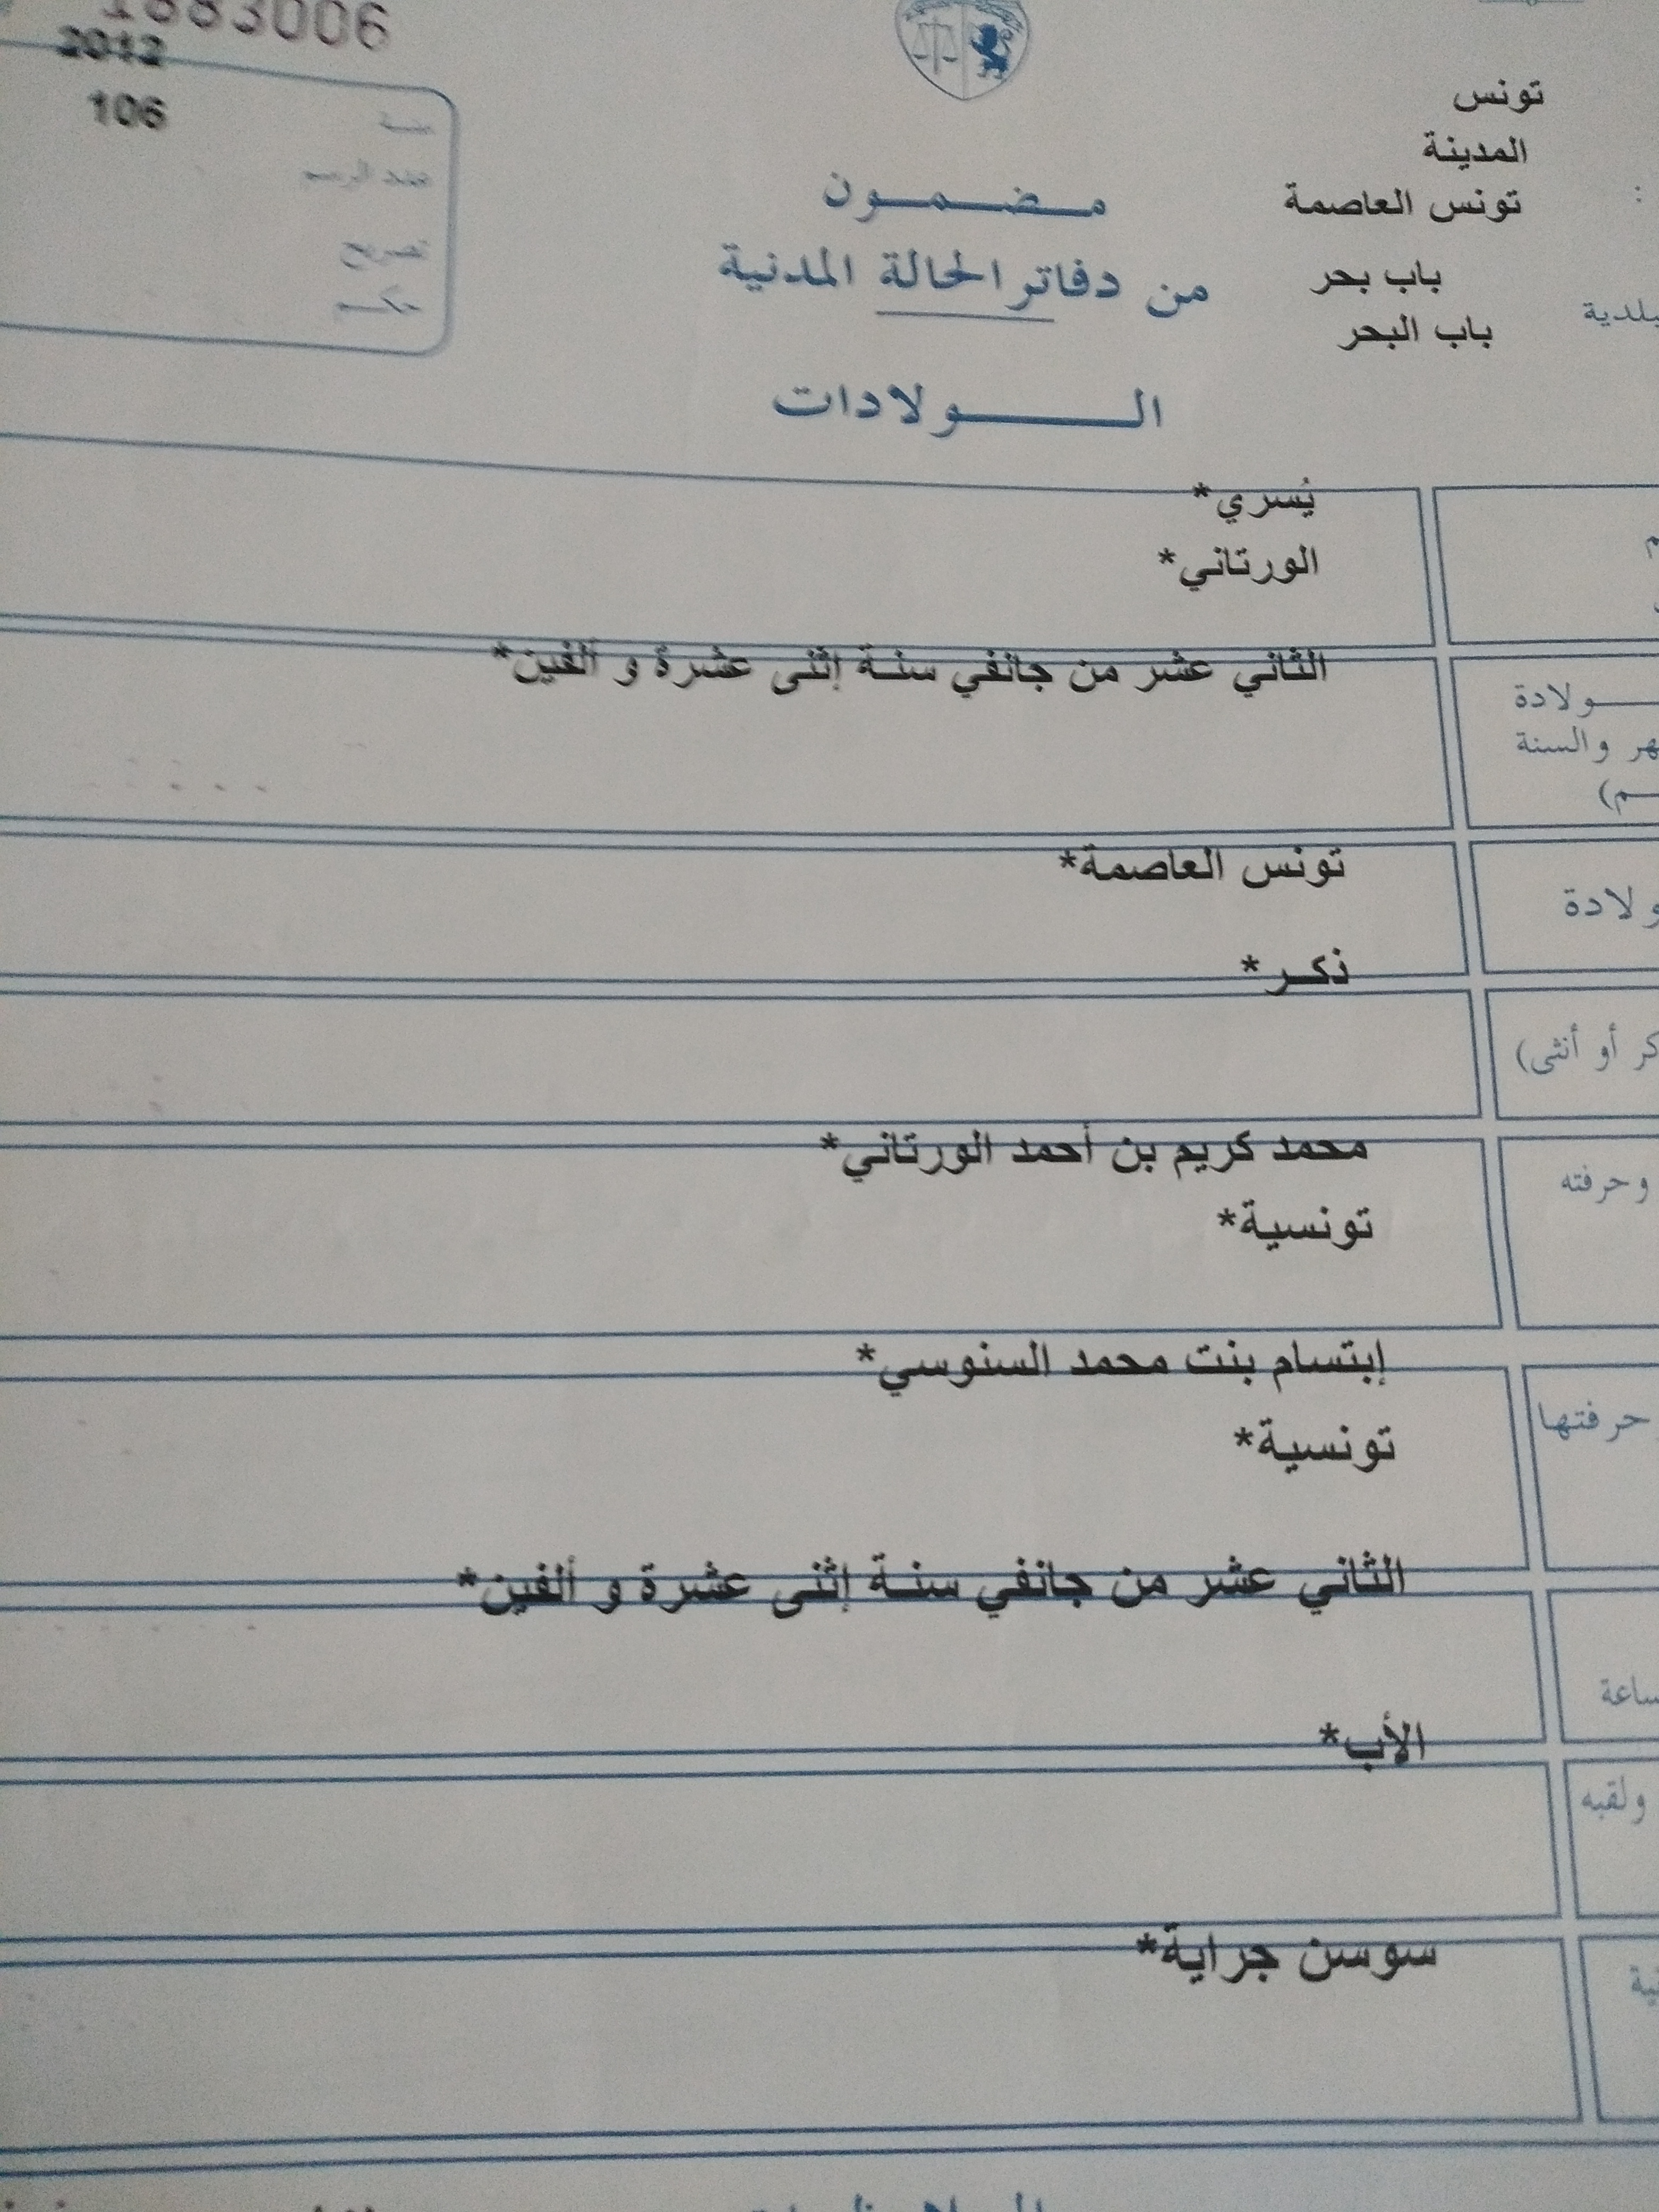 1883006
2012
106
سنة
عدد الرسم
تصريح
حكم
تونس
المدينة
تونس العاصمة
باب بحر
باب البحر
مضمون
من دفاتر الحالة المدنية
الولادات
يُسري*
الورتاني*
الثاني عشر من جانفي سنة إثنى عشرة و ألفين*
ولادة
والسنة
تونس العاصمة*
ولادة
ذكر*
أو أنثى)
محمد كريم بن أحمد الورتاني*
وحرفته
تونسية*
إبتسام بنت محمد السنوسي*
حرفتها
تونسية*
الثاني عشر من جانفي سنة إثنى عشرة و ألفين*
الأب*
ولقبه
سوسن جراية*